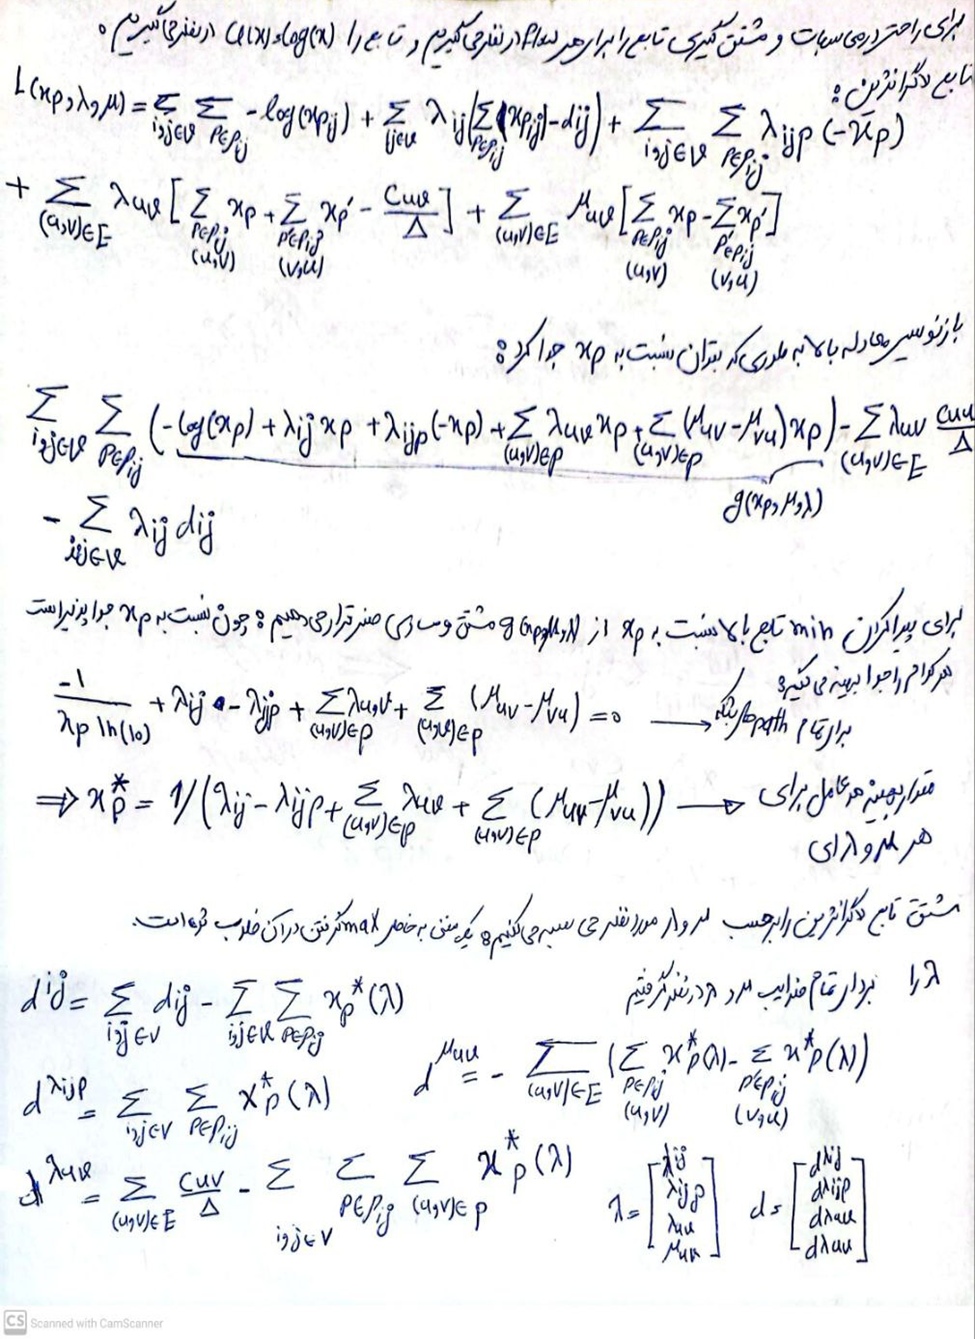 برای راحتی در محاسبات و مشتق گیری تابع را برابر در نظر می گیریم و تابع را U(x)=log(x) در نظر می گیریم:
تابع لاگرانژین:
L(xp,λ,μ) = Σ_{i,j∈V} Σ_{P∈Pij} -log(xpij) + Σ_{ij∈V} λij(Σ_{P∈Pij}(xpij)-dij) + Σ_{i,j∈V} Σ_{P∈Pij} λijp (-xp)
+ Σ_{(u,v)∈E} λuv [Σ_{P∈Pij (u,v)} xp + Σ_{P'∈Pij (v,u)} xp' - Cuv/Δ] + Σ_{(u,v)∈E} μuv [Σ_{P∈Pij (u,v)} xp - Σ_{P'∈Pij (v,u)} xp']
بازنویسی معادله بالا به طوری که بتوان نسبت به xp جدا کرد:
Σ_{i,j∈V} Σ_{P∈Pij} (-log(xp) + λij xp + λijp(-xp) + Σ_{(u,v)∈p} λuv xp + Σ_{(u,v)∈p} (μuv-μvu) xp) - Σ_{(u,v)∈E} λuv Cuv/Δ
g(xp,μ,λ)
- Σ_{i,j∈V} λij dij
برای پیدا کردن min تابع بالا نسبت به xp از g(xp,μ,λ) مشتق و مساوی صفر قرار می دهیم: چون نسبت به xp جدا پذیر است
هر کدام را جدا بهینه می کنیم:
-1/(xp ln(10)) + λij - λijp + Σ_{(u,v)∈p} λu,v + Σ_{(u,v)∈p} (μuv-μvu) = 0 → برای تمام path های شبکه
⇒ x*p = 1/(λij - λijp + Σ_{(u,v)∈p} λuv + Σ_{(u,v)∈p} (μuv-μvu)) → مقدار بهینه هر عامل برای
هر μ و λ ای
مشتق تابع لاگرانژین را برحسب μ و λ مورد نظر محاسبه می کنیم: یک منفی به خاطر max گرفتن در آن ضرب شده است.
λ را بردار تمام ضرایب μ و λ در نظر گرفتیم
d^{ij} = Σ_{i,j∈V} dij - Σ_{i,j∈V} Σ_{P∈Pij} xp*(λ)
d^{μuv} = - Σ_{(u,v)∈E} (Σ_{P∈Pij (u,v)} x*p(λ) - Σ_{P'∈Pij (v,u)} x*p(λ))
d^{λijp} = Σ_{i,j∈V} Σ_{P∈Pij} x*p(λ)
d^{λuv} = Σ_{(u,v)∈E} Cuv/Δ - Σ_{i,j∈V} Σ_{P∈Pij} Σ_{(u,v)∈p} x*p(λ)
λ = [λij λijp λuv μuv] d = [dλij dλijp dλuv dλuu]
CS Scanned with CamScanner